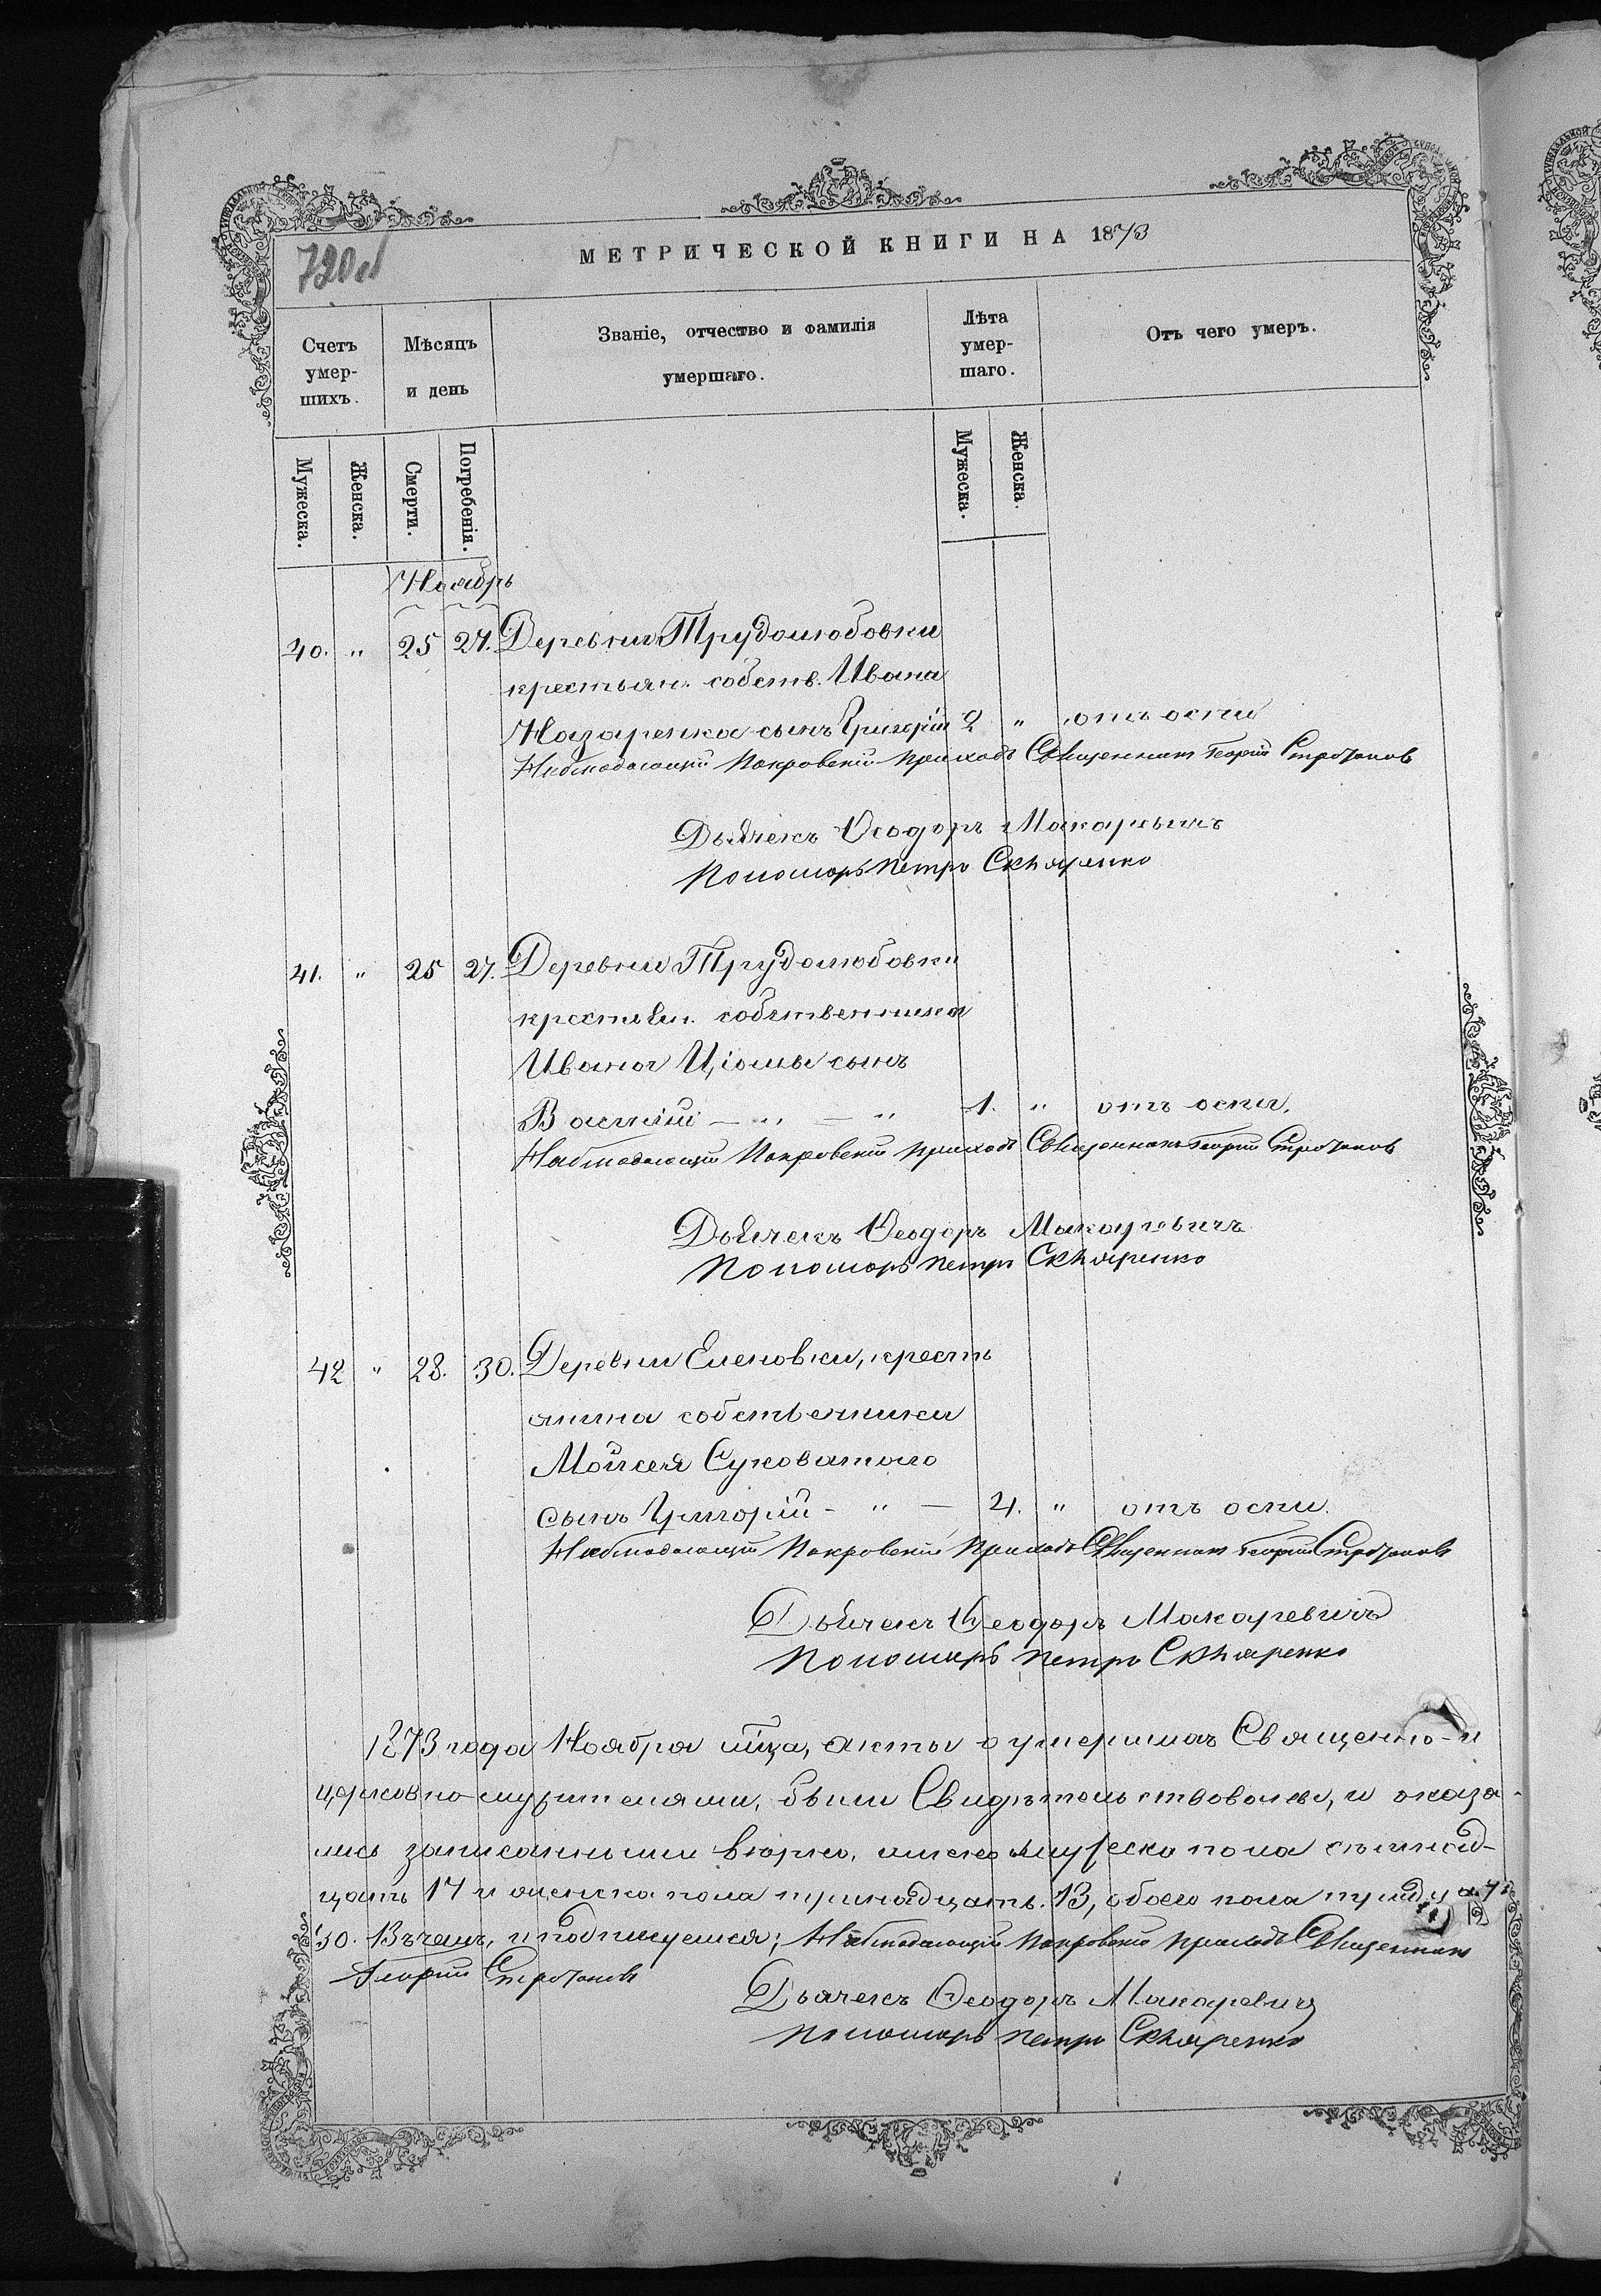 720об
МЕТРИЧЕСКОЙ КНИГИ НА 1873
Счетъ умер-шихъ.
Мѣсяцъ и день
Званіе, отчество и фамилія умершаго.
Лѣта умер-шаго.
Отъ чего умеръ.
Мужеска. Женска. Смерти. Погребенія. Мужеска. Женска.
Ноябрь
40. " 25 27. Деревни Трудолюбовки
крестьян. собств. Ивана
Назаренка сынъ Григорій 2 " отъ оспи
Наблюдающій Покровскій приходъ Священникъ Георгій
Дьячекъ Ѳеодоръ Макаревичъ
Пономарь Петръ Скляренко
41. " 25 27. Деревни Трудолюбовки
крестьян. собственника
Ивана Ціомы сынъ
Василій — " — " 1. " отъ оспи.
Наблюдающій Покровскій приходъ Священникъ Георгій
Дьячекъ Ѳеодоръ Макаревичъ
Пономарь Петръ Скляренко
42 " 28. 30. Деревни Еленовки, кресть
янина собственника
Мойсея Суховатого
сынъ Григорій - " — 4. " отъ оспи.
Наблюдающій Покровскій приходъ Священникъ Георгій
Дьячекъ Ѳеодоръ Макаревичъ
Пономарь Петръ Скляренко
1873 года Ноября м҃ца, акты о умершихъ Священно-и
церковно-служителями, были Свидѣтельствованы, и оказа-
лись записанными вѣрно, мужеска пола
17 и женска пола тринадцать. 13, обоего пола тридцать
30. Въ чемъ, и подпишемся; Наблюдающій Покровскій приходъ Священникъ
Георгій
Дьячекъ Ѳеодоръ Макаревичъ
Пономарь Петръ Скляренко